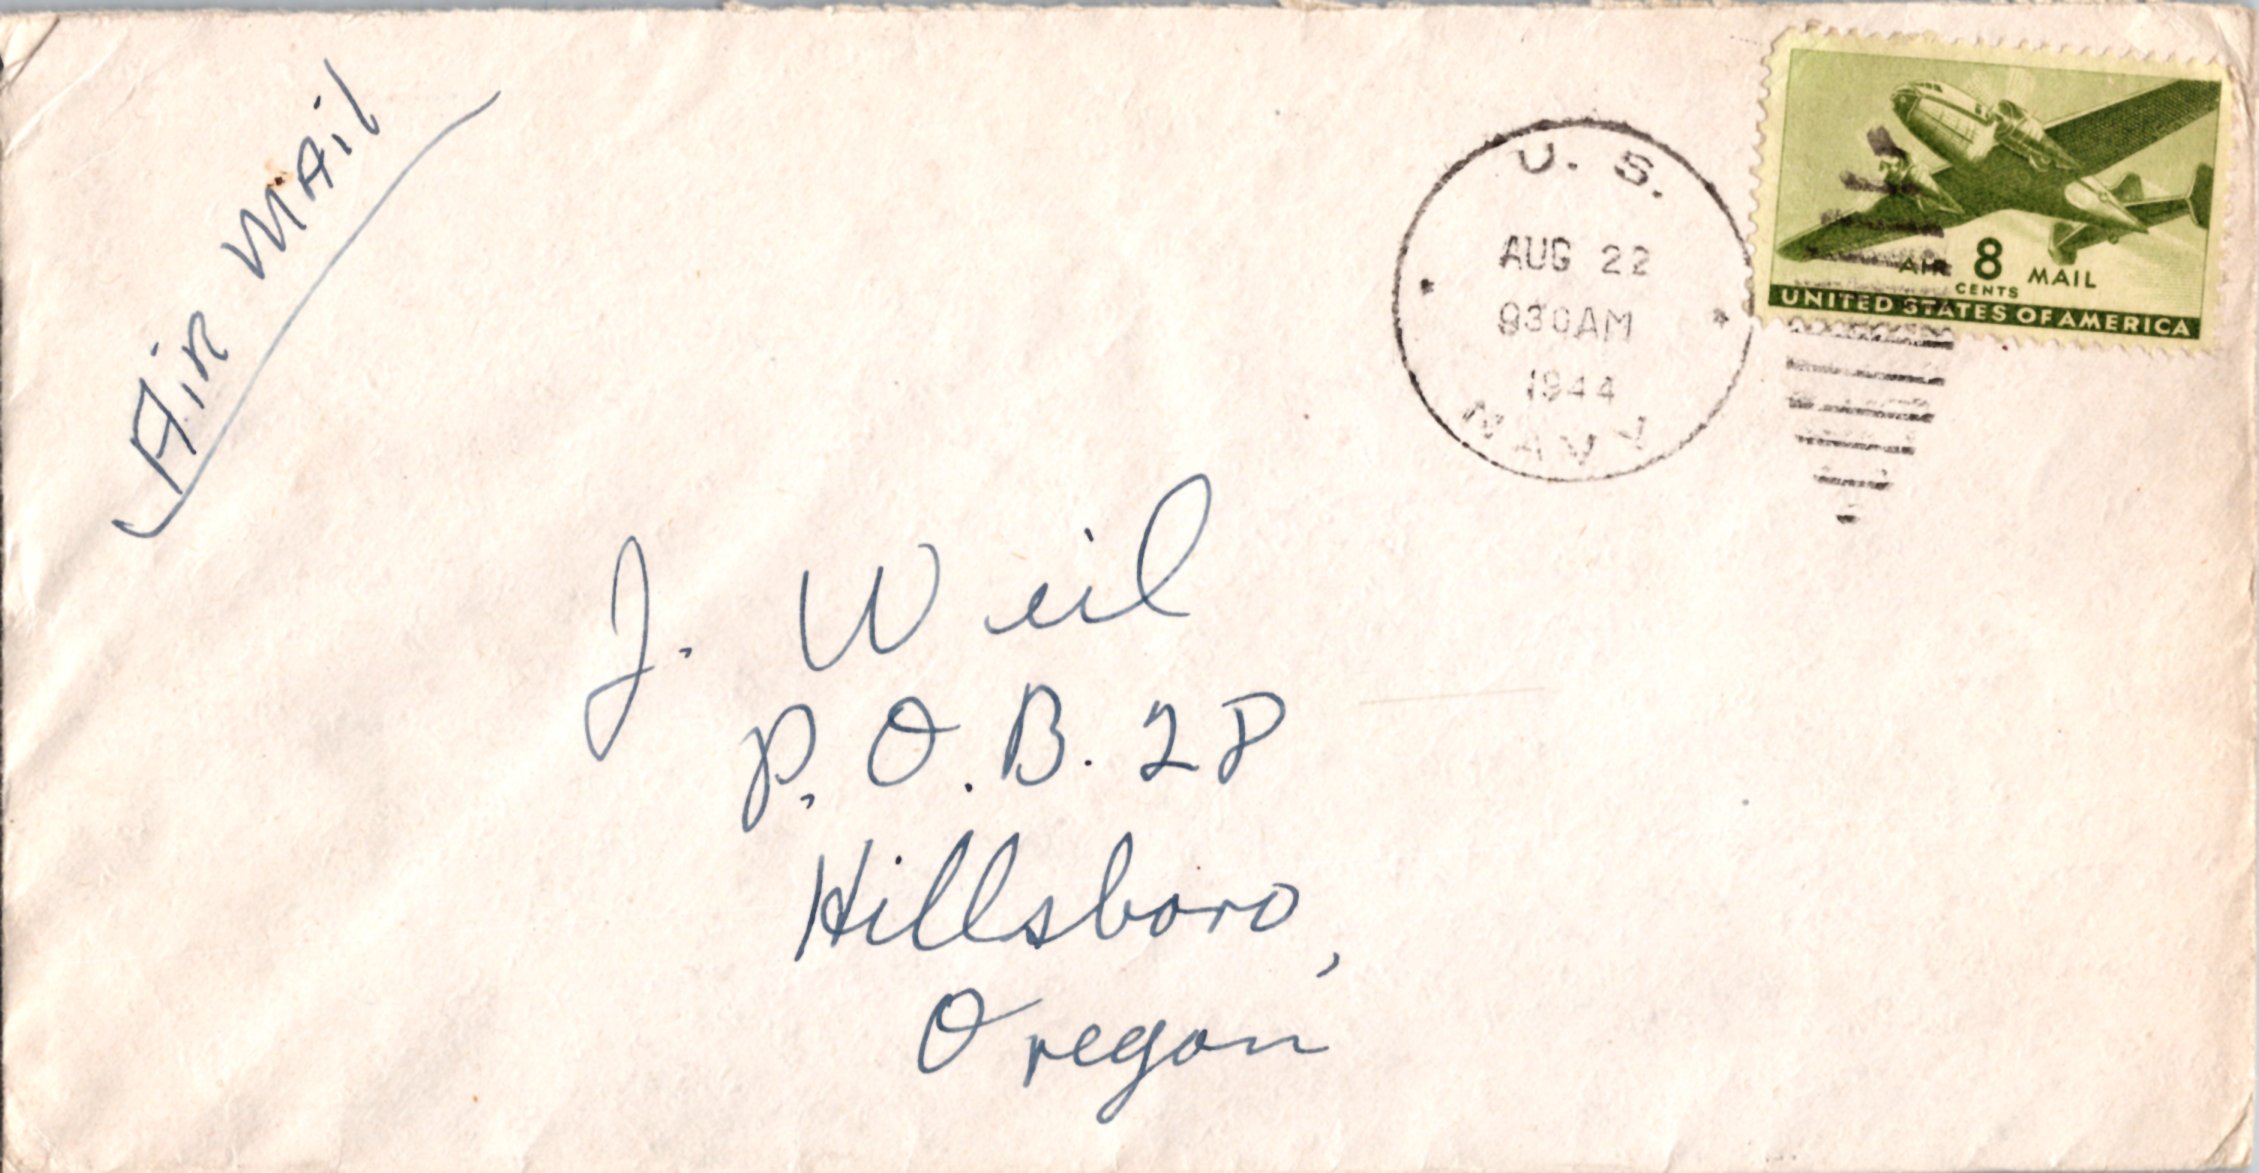 Air Mail
U. S.
AUG 22
930AM
1944
NAVY
AIR 8 MAIL
CENTS
UNITED STATES OF AMERICA
J. Weil
P.O.B. 28
Hillsboro,
Oregon